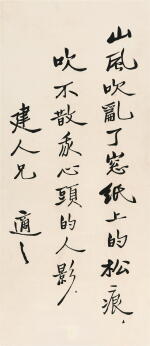 山風吹亂了窓紙上的松痕，
吹不散我心頭的人影．
建人兄
適之